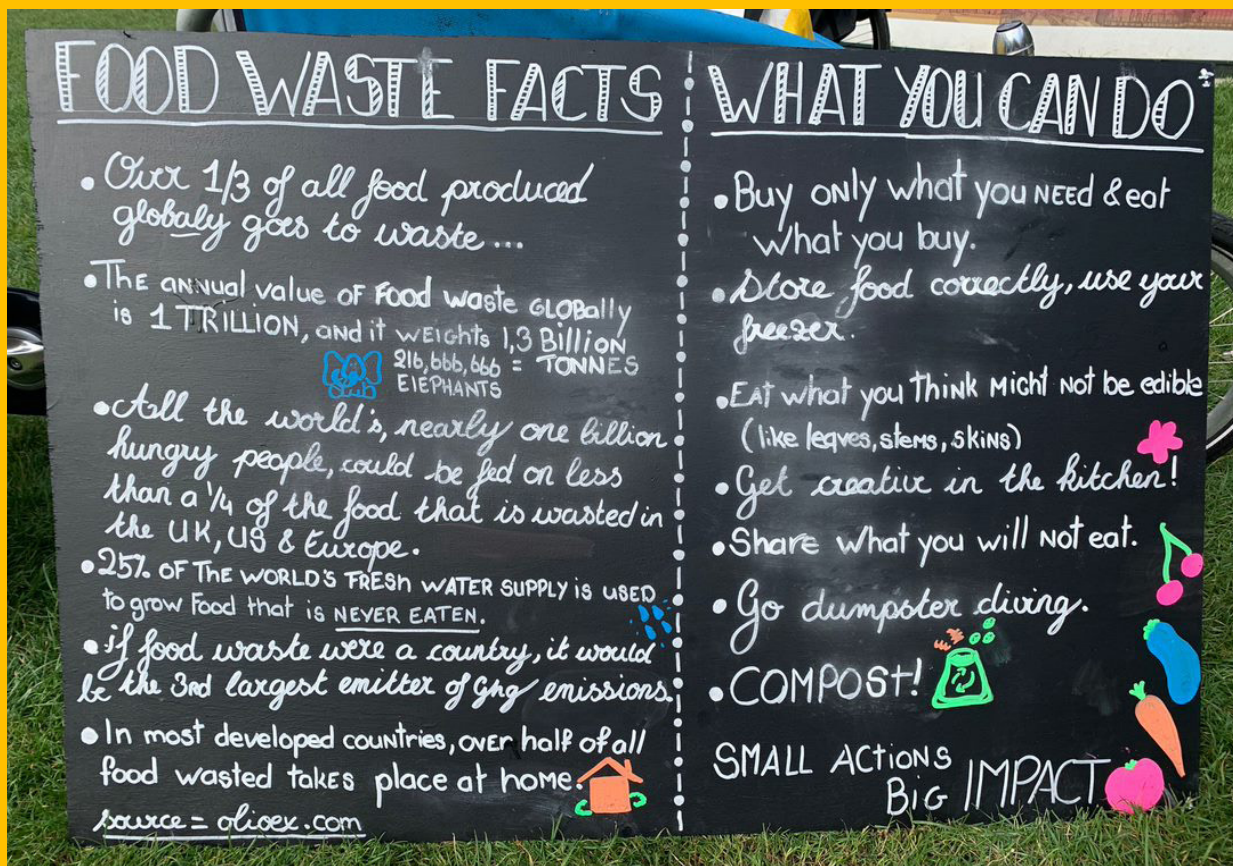 FOOD WASTE FACTS
• Over 1/3 of all food produced
globaly goes to waste...
• THE ANNUAL value OF Food waste GLOBally
is 1 TRILLION, and it WEIGHTS 1,3 Billion
216,666,666 = TONNES
ElEPHANTS
• All the world's, nearly one billion
hungry people, could be fed on less
than a 1/4 of the food that is wasted in
the UK, US & Europe.
• 25% OF THE WORLD'S FRESH WATER SUPPLY IS USED
to grow Food that is NEVER EATEN.
• if food waste were a country, it would
be the 3rd largest emitter of ghg emissions.
• In most developed countries, over half of all
food wasted takes place at home.
source = olioex.com
WHAT YOU CAN DO
• Buy only what you NEED & eat
what you buy.
• Store food correctly, use your
freezer.
• EAT what you THINK MIGHT NOT be edible
(like leaves, stems, skins)
• Get creative in the kitchen!
• Share what you will Not eat.
• Go dumpster diving.
• COMPOSt!
SMALL ACTIONS
BIG IMPACT